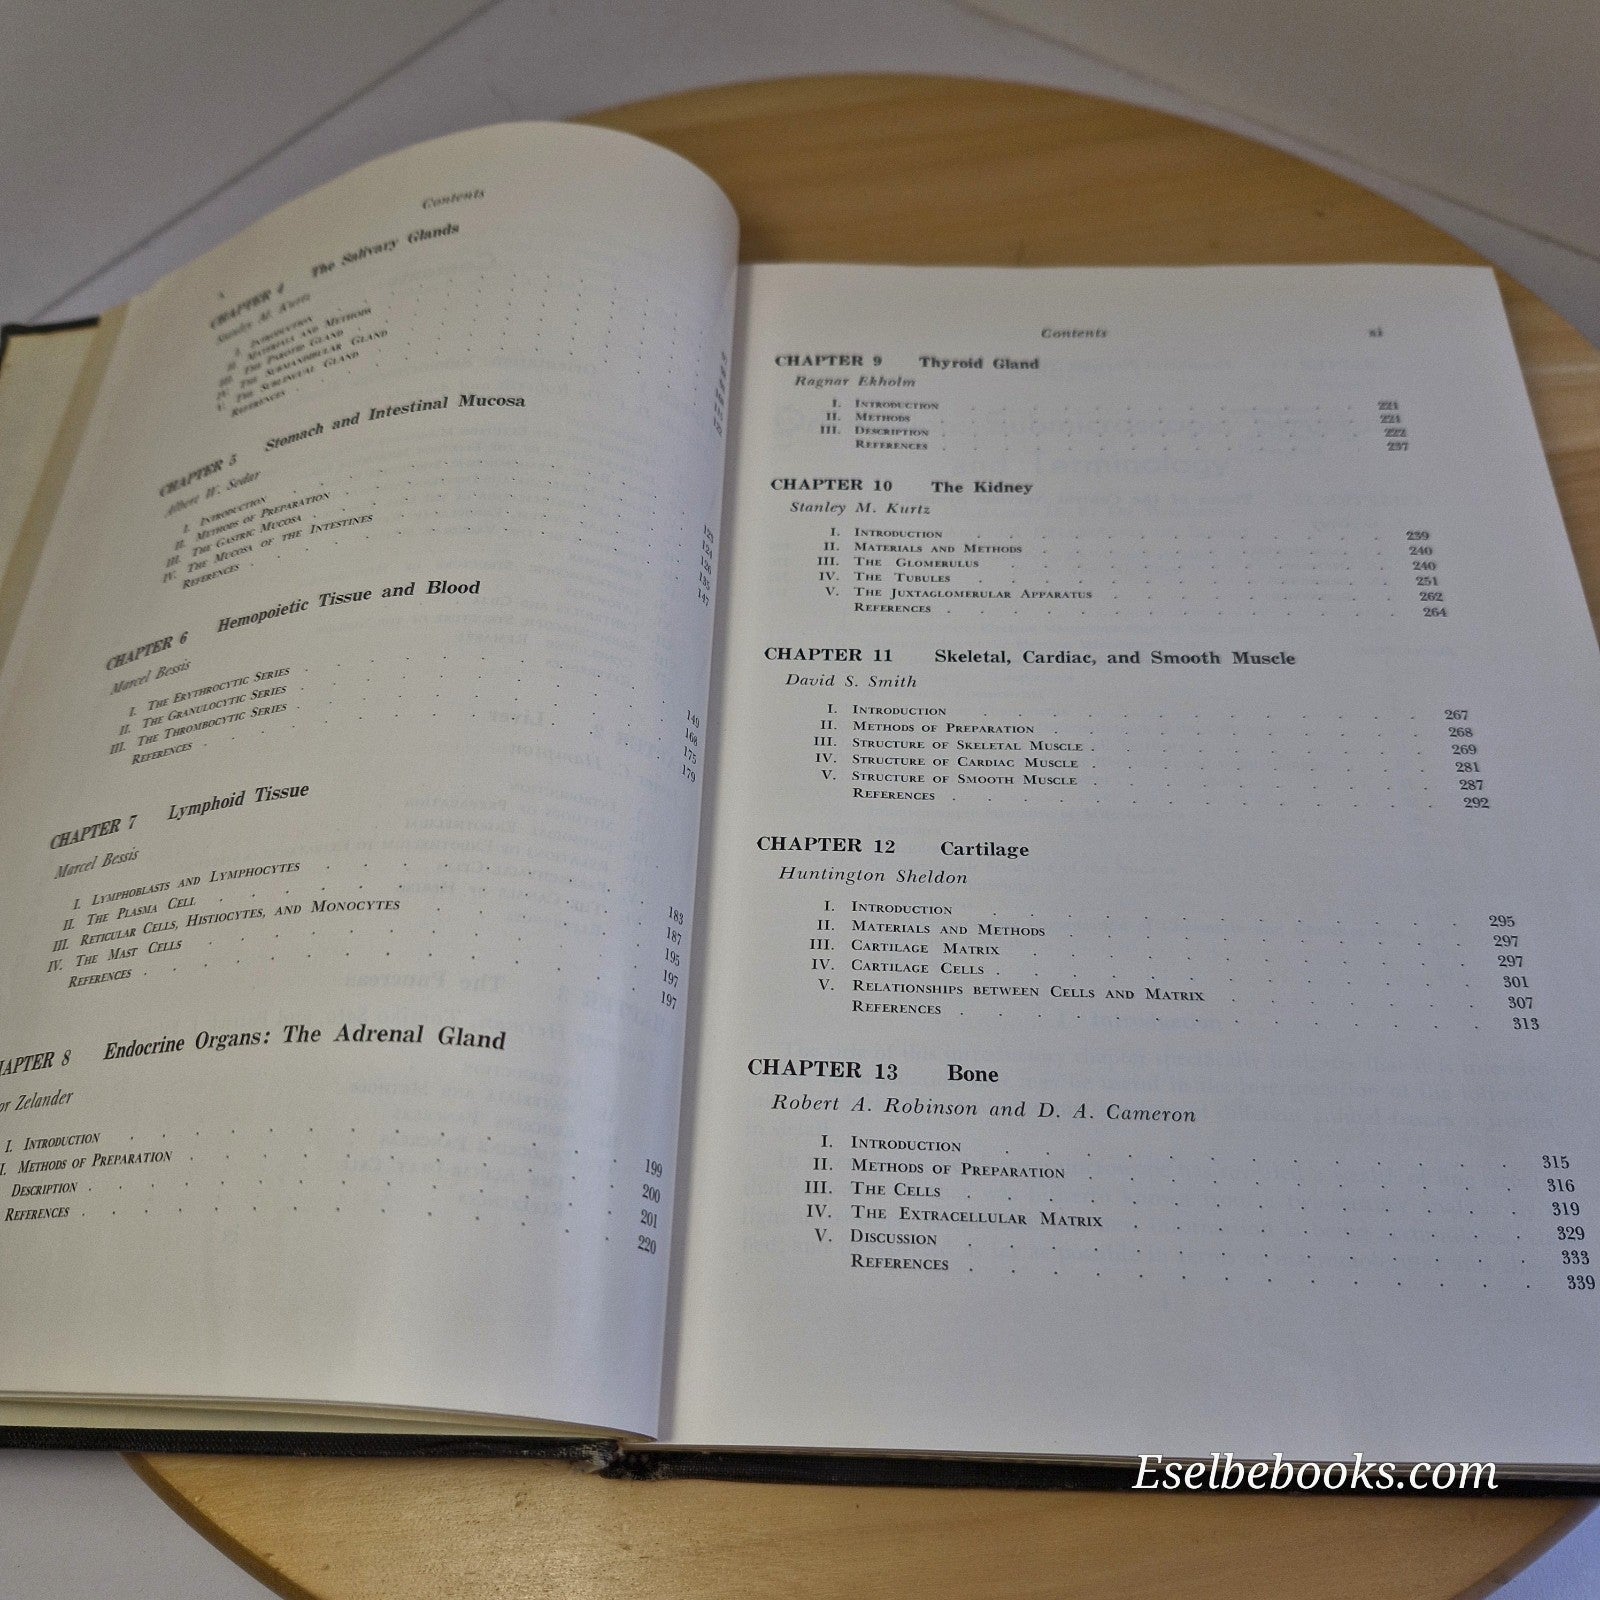 Contents
CHAPTER 4 The Salivary Glands
Stanley M. Kurtz
I. INTRODUCTION
II. MATERIALS AND METHODS
III. THE PAROTID GLAND
IV. THE SUBMANDIBULAR GLAND
V. THE SUBLINGUAL GLAND
REFERENCES
CHAPTER 5 Stomach and Intestinal Mucosa
Albert W. Sedar
I. INTRODUCTION 123
II. METHODS OF PREPARATION 124
III. THE GASTRIC MUCOSA 126
IV. THE MUCOSA OF THE INTESTINES 135
REFERENCES 147
CHAPTER 6 Hemopoietic Tissue and Blood
Marcel Bessis
I. THE ERYTHROCYTIC SERIES 149
II. THE GRANULOCYTIC SERIES 168
III. THE THROMBOCYTIC SERIES 175
REFERENCES 179
CHAPTER 7 Lymphoid Tissue
Marcel Bessis
I. LYMPHOBLASTS AND LYMPHOCYTES 183
II. THE PLASMA CELL 187
III. RETICULAR CELLS, HISTIOCYTES, AND MONOCYTES 195
IV. THE MAST CELLS 197
REFERENCES 197
APTER 8 Endocrine Organs: The Adrenal Gland
or Zelander
I. INTRODUCTION 199
I. METHODS OF PREPARATION 200
DESCRIPTION 201
REFERENCES 220
Contents xi
CHAPTER 9 Thyroid Gland
Ragnar Ekholm
I. INTRODUCTION 221
II. METHODS 221
III. DESCRIPTION 222
REFERENCES 237
CHAPTER 10 The Kidney
Stanley M. Kurtz
I. INTRODUCTION 239
II. MATERIALS AND METHODS 240
III. THE GLOMERULUS 240
IV. THE TUBULES 251
V. THE JUXTAGLOMERULAR APPARATUS 262
REFERENCES 264
CHAPTER 11 Skeletal, Cardiac, and Smooth Muscle
David S. Smith
I. INTRODUCTION 267
II. METHODS OF PREPARATION 268
III. STRUCTURE OF SKELETAL MUSCLE 269
IV. STRUCTURE OF CARDIAC MUSCLE 281
V. STRUCTURE OF SMOOTH MUSCLE 287
REFERENCES 292
CHAPTER 12 Cartilage
Huntington Sheldon
I. INTRODUCTION 295
II. MATERIALS AND METHODS 297
III. CARTILAGE MATRIX 297
IV. CARTILAGE CELLS 301
V. RELATIONSHIPS BETWEEN CELLS AND MATRIX 307
REFERENCES 313
CHAPTER 13 Bone
Robert A. Robinson and D. A. Cameron
I. INTRODUCTION 315
II. METHODS OF PREPARATION 316
III. THE CELLS 319
IV. THE EXTRACELLULAR MATRIX 329
V. DISCUSSION 333
REFERENCES 339
Eselbebooks.com